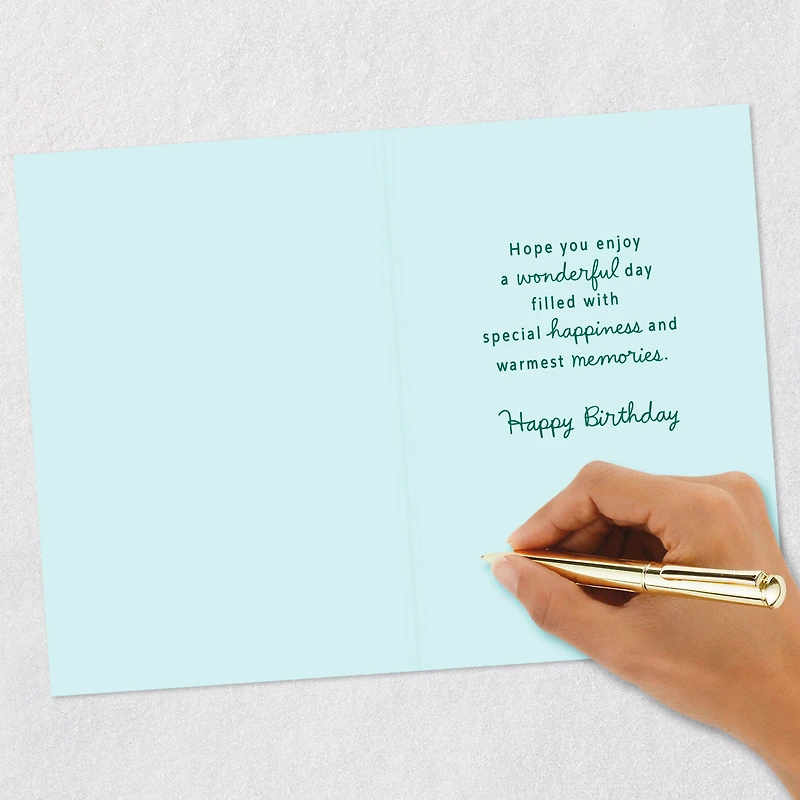 Hope you enjoy
a wonderful day
filled with
special happiness and
warmest memories.
Happy Birthday